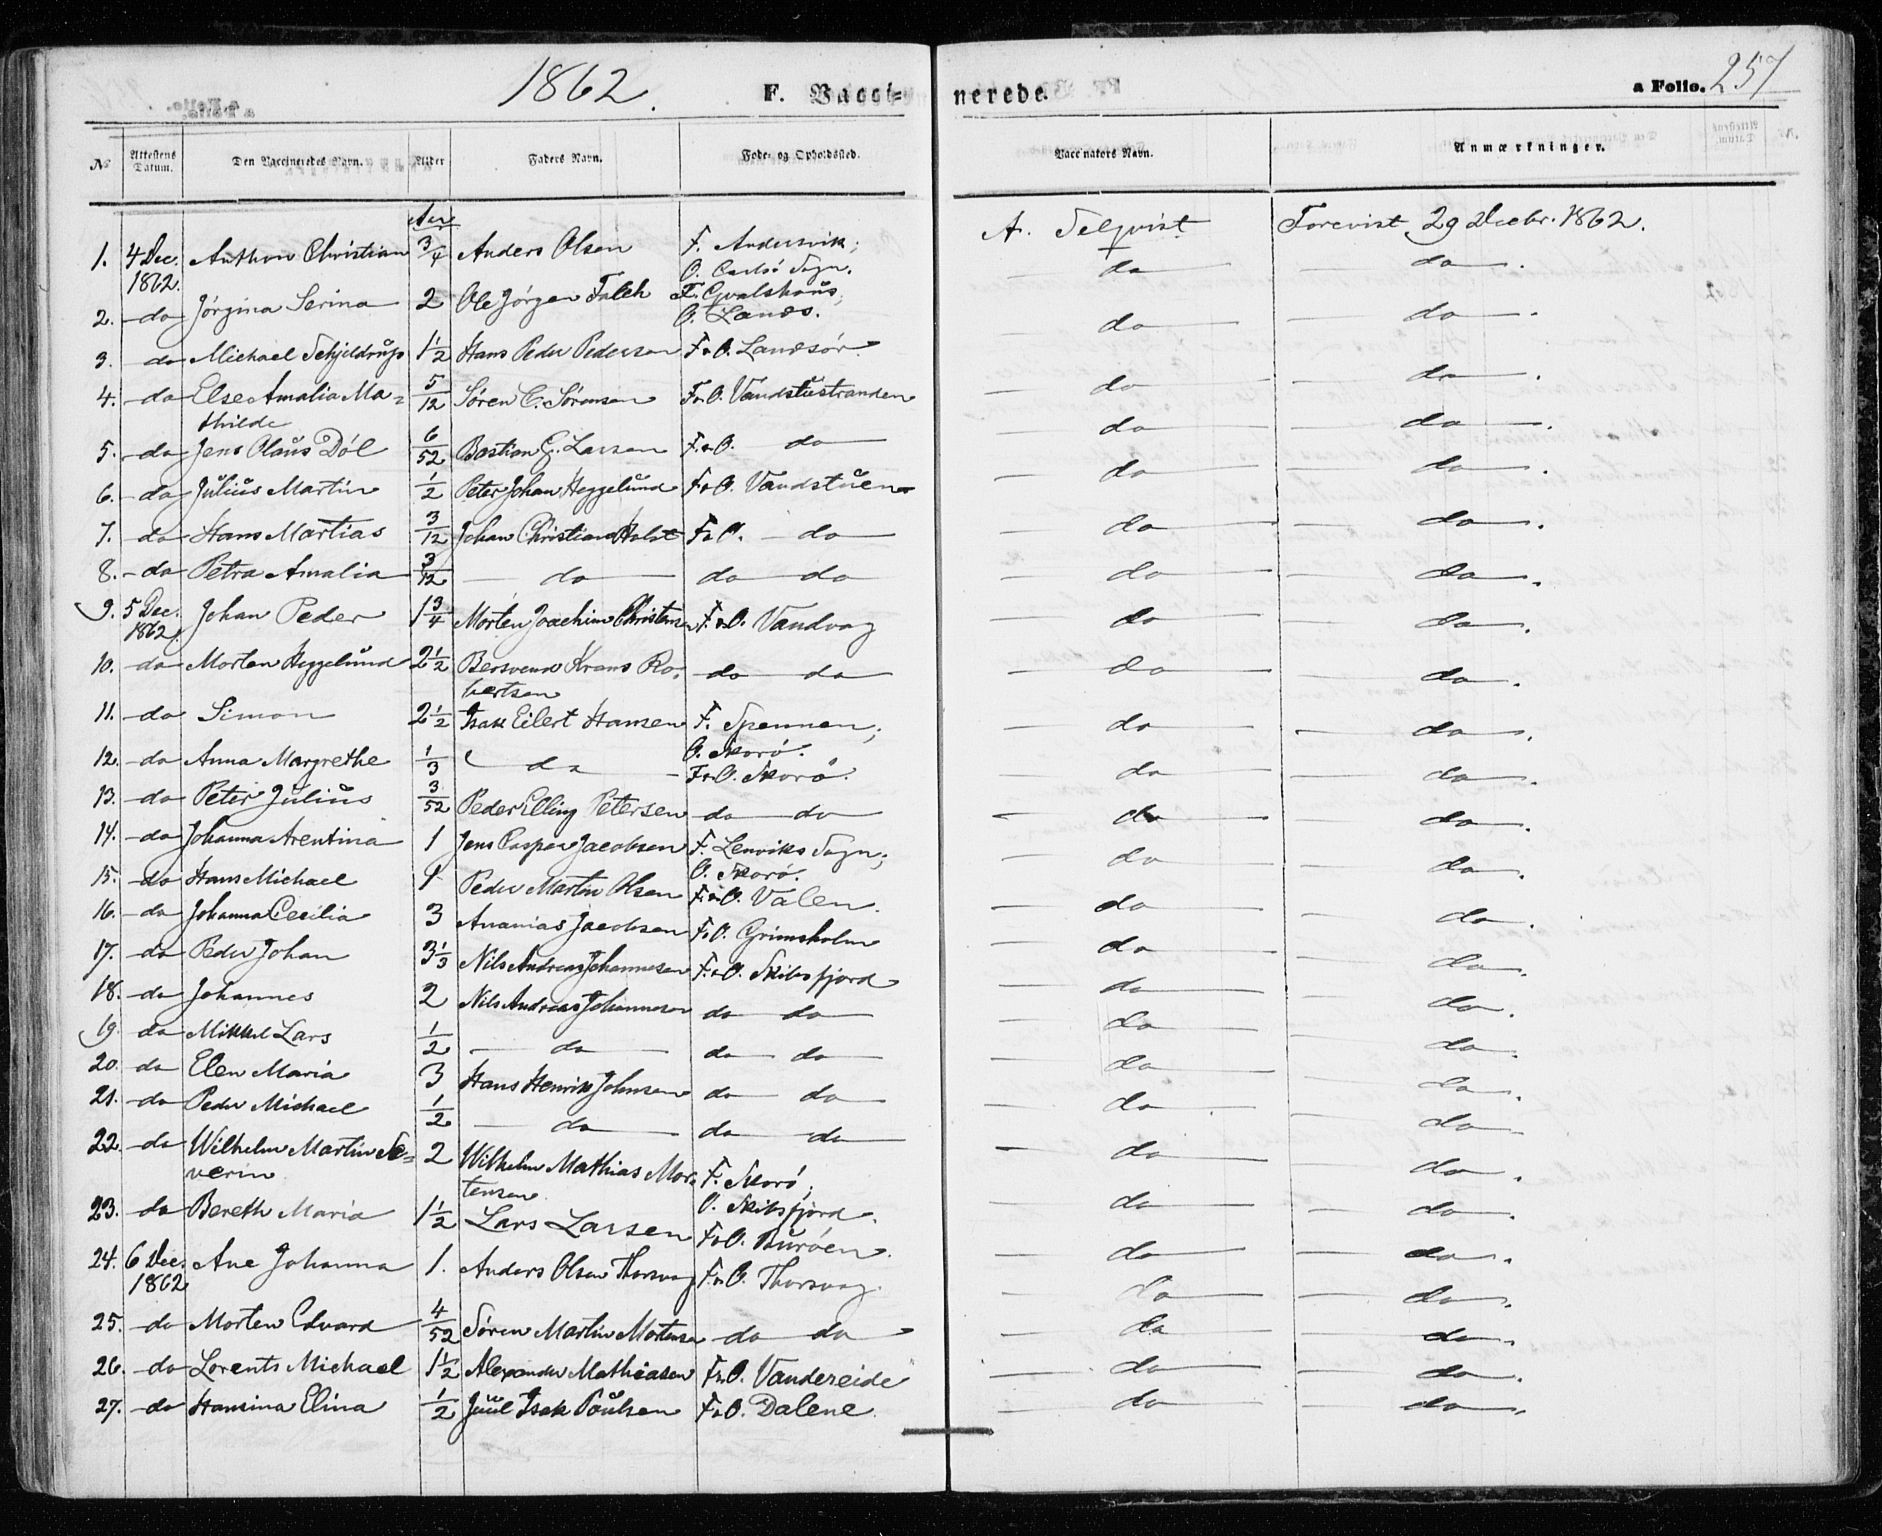 1862. F. Vacci= nerede. a Folio. 257
No Attestens Datum. Den Vaccineredes Navn. Alder Faders Navn. Føde- og Opholdssted. Vaccinators Navn. Anmærkninger.
Aar
1. 4 Dec. 1862. Anthon Christian 3/4 Anders Olsen F. Andersvik; O. Carlsö Sogn. A. Selqvist Forevist 29 Decbr. 1862.
2. do Jörgina Serina 2 Ole Jörgen Falch F. Gvalshaus; O. Lanes. do do.
3. do Michael Schjeldrup 1 1/2 Hans Peder Pedersen F. & O. Lanesör. do do.
4. do Else Amalia Ma=
thilde 5/12 Sören C. Sörensen F. & O. Vandstuestranden do do.
5. do Jens Olaus Döl 6/52 Bastian G. Larsen F. & O. do do do.
6. do Julius Martin 1/2 Peter Johan Heggelund F & O. Vandstuen do do.
7. do Hans Martias 3/12 Johan Christian Holst F & O. do do do.
8. do Petra Amalia 3/12 do do do do do.
9. 5 Dec. 1862. Johan Peder 1 3/4 Morten Joachim Christensen F. & O. Vandvag do do.
10. do Morten Heggelund 2 1/2 Bersvend Krans Ro=
bertsen do do do do.
11. do Simon 2 1/2 Isak Eilert Hansen F. Spennen; O. Skorö. do do.
12. do Anna Margrethe 1/3 do F & O. Skorö. do do.
13. do Peter Julius 3/52 Peder Elling Petersen do do do do.
14. do Johanna Arentina 1 Jens Caspar Jacobsen F. Lenviks Sogn; O. Skorö. do do.
15. do Hans Michael 1 Peder Martin Olsen F. & O. Valen. do do.
16. do Johanna Cecilia 3 Ananias Jacobsen F & O. Grimsholm do do.
17. do Peder Johan 3 1/3 Nils Andreas Johannesen F. & O. Skibsfjord do do.
18. do Johannes 2 Nils Andreas Johannesen do do do do.
19. do Mikkel Lars 1/2 do do do do do.
20. do Elen Maria 3 Hans Henrik Johnsen do do do do.
21. do Peder Michael 1/2 do do do do do
22. do Wilhelm Martin Se=
verin 2 Wilhelm Mathias Mor=
tensen F. Skorö; O. Skibsfjord. do do.
23. do Bereth Maria 1 1/2 Lars Larsen F & O. Buröen. do do.
24. 6 Dec. 1862 Ane Johanna 1. Anders Olsen Thorsvag F & O. Thorsvag. do do.
25. do Morten Edvard 4/52 Sören Martin Mortensen do do do do.
26. do Lorents Michael 1 1/2 Alexander Mathiasen F & O. Vandereide do do.
27. do Hansina Elina 1/2 Juul Isak Paulsen F & O. Dalene. do do.